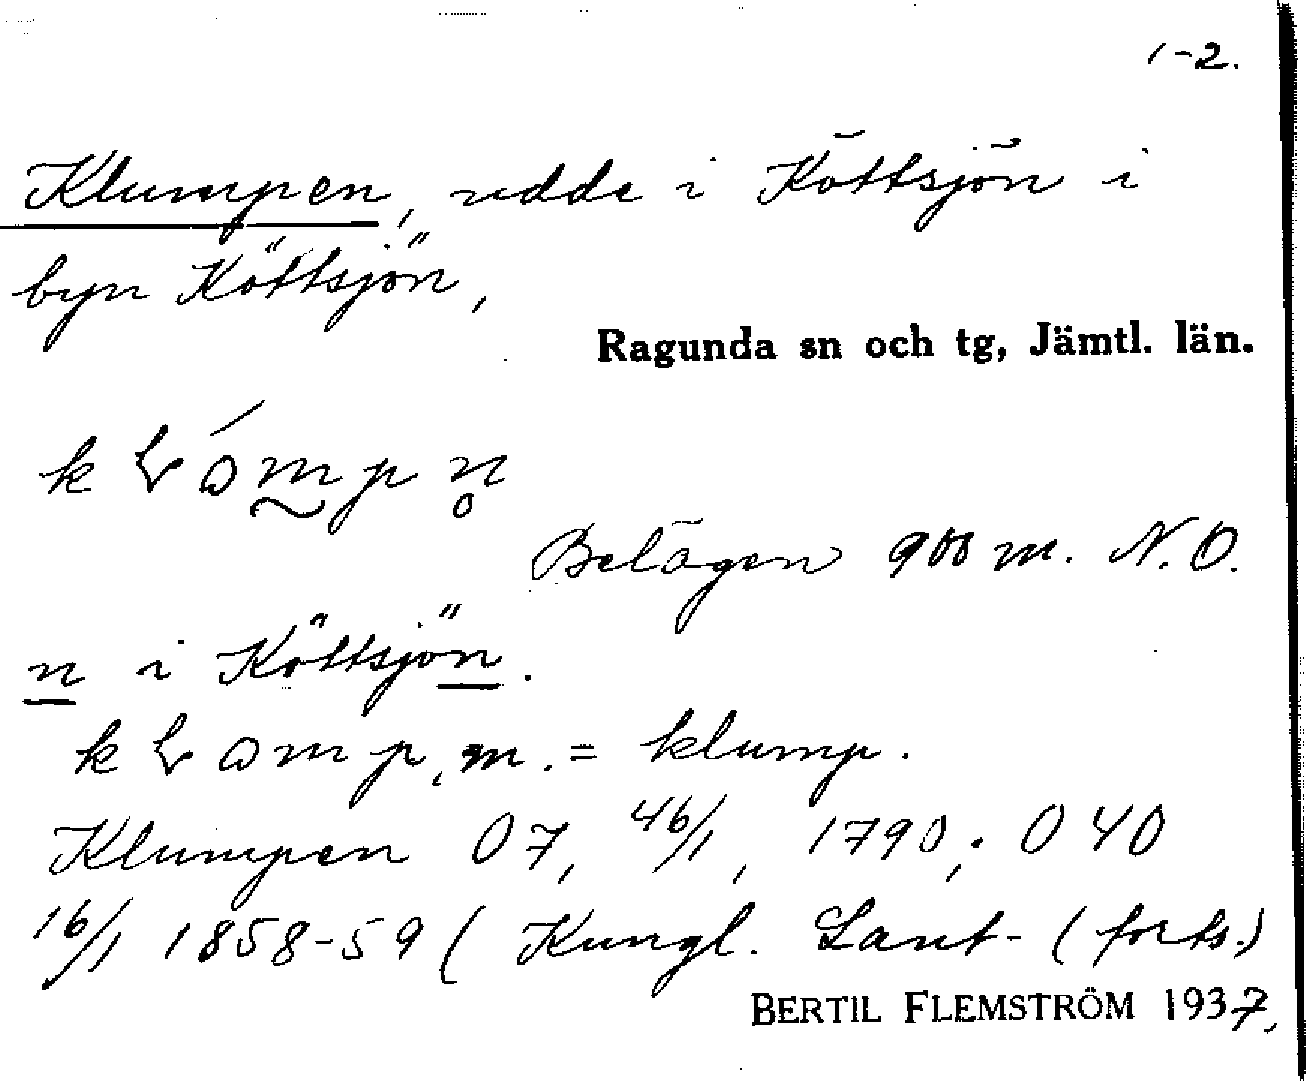 1-2.
Klumpen, udde i Köttsjön i
byn Köttsjön,
Ragunda sn och tg, Jämtl. län.
Belägen 900 m. N.O.
n i Köttsjön.
m. = klump.
Klumpen 07, 46/1, 1790; 040
16/1 1858-59 ( Kungl. Lant- (forts.)
BERTIL FLEMSTRÖM 1937,